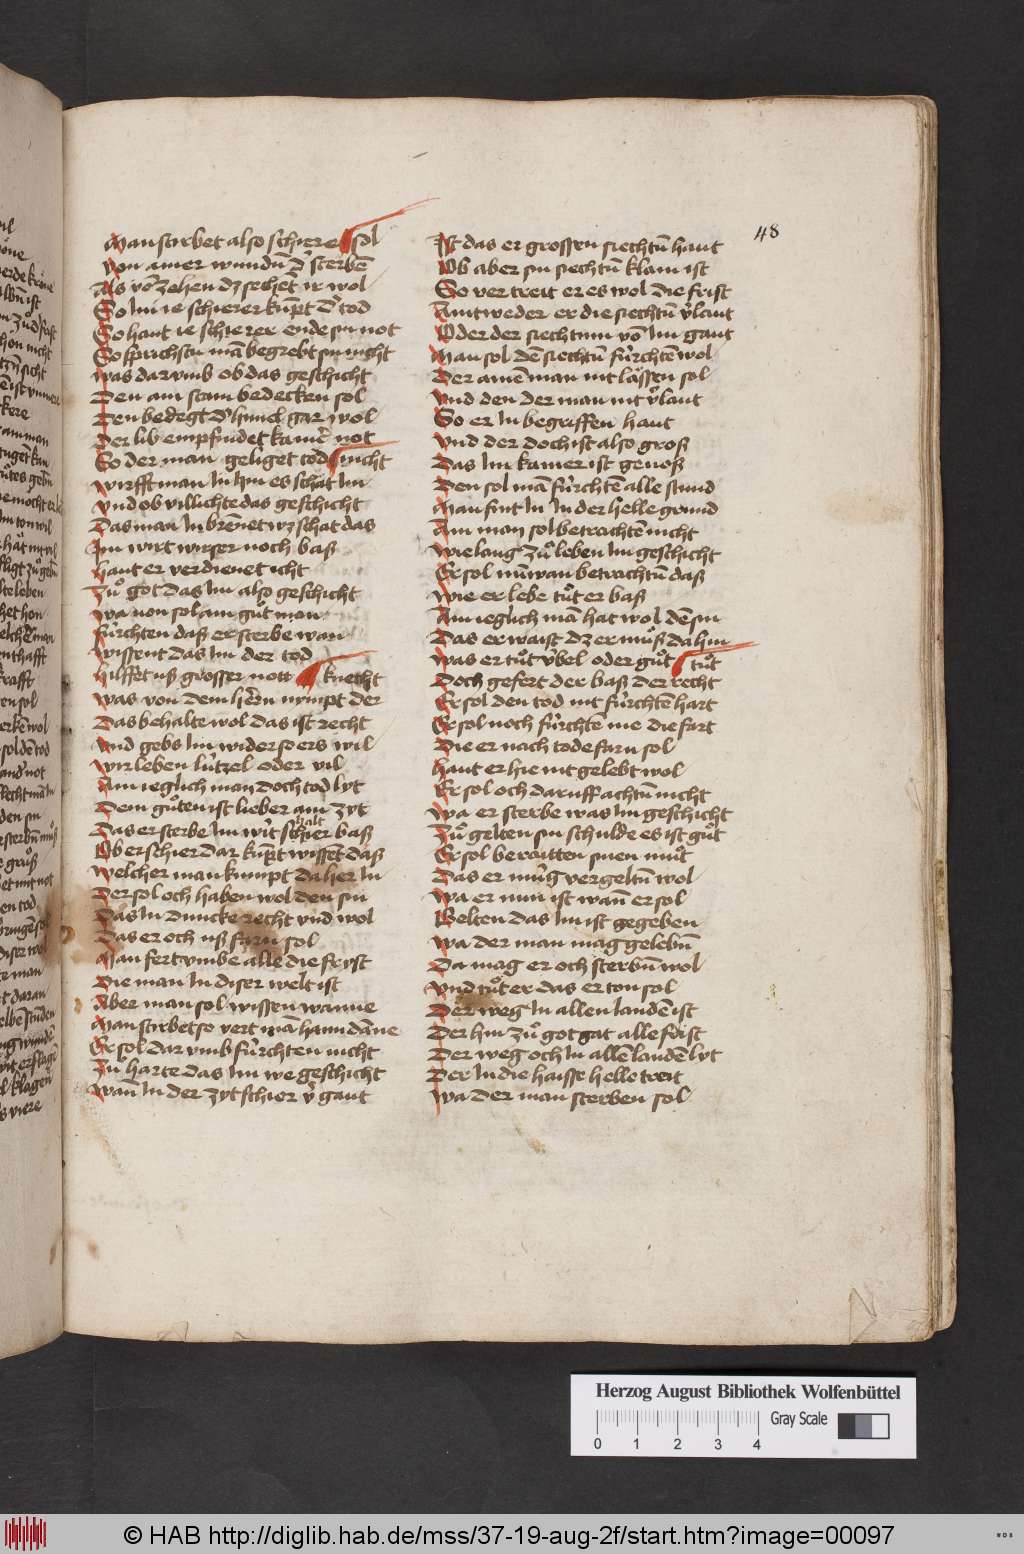 48
Man stirbet also schiere sol
von ainer wundn̄ d' sterbē
Als vō zehen dz sehēt ir wol
So im ie schierer kūpt d' tod
So haut ie schierer ende sin not
So sprichstu mā begrebt sin nicht
was dar vmb ob das geschicht
Den am stam bedecken sol
Den bedegt d' himel gar wol
Der lib empfindet kainˀ not
So der man geliget tod nicht
wirfft man in hin es schat im
vnd ob villichte das geschicht
Das man in brēnet wz schat das
Im wirt wirser noch baß
haut er verdienet icht
Zuͦ got das im also geschicht
wa von sol ain guͦt man
fürchten daß er sterbe wan
wissent das im der tod
hilffet uß grosser nott knecht
was von dem hērn nympt der
Das behalte wol das ist recht
vnd gebs im wider so ers wil
wir leben lützel oder vil
Ain ieglich man doch tod lyt
Dem guͦten ist lieber ain zyt
Das er sterbe im wirt schier halt baß
Ob er schier dar kūpt wissēt daß
welcher man kumpt da her in
Der sol och haben wol den sin
Das in duncke recht vnd wol
Das er och uß farn sol
Man fert vmbe alle die fryst
Die man in diser welt ist
Aber man sol wissen wanne
Man stirbet so vert mā hann dāne
Er sol dar vmb fürchten nicht
Zuͦ harte das im we geschicht
wan̄ in der zyt schier v'gaut
Ist das er grossen siechtū haut
Ob aber sin siechtū klain ist
So vertreit er es wol die frist
Aintweder er die siechtū v'laut
Oder der siechtum vō im gaut
Man sol dē siechtū fürchtē wol
Der ainē man nit lăssen sol
vnd den der man nit v'laut
So er in begriffen haut
vnd der doch ist also groß
Das im kainer ist genoß
Den sol mā fürchtē alle stund
Man fint in in der helle grund
Ain man sol betrachtē nicht
wie lang zuͦ leben im geschicht
Er sol nūwan betrachtū daß
wie er lebe tuͦt er baß
Ain ieglich mā hat wol dē sin
Das er waist dz er muͦß da hin
was er tuͦt v̈bel oder guͦt tuͦt
Doch gefert der baß der recht
Er sol den tod nit fürchtē hart
Er sol noch fürchtē me die fart
Die er nach tode farn sol
haut er hie nit gelebt wol
Er sol och daruff achtū nicht
wa er sterbe was im geschicht
Zuͦ gelten sin schulde es ist guͦt
Er sol beraitten sinen muͦt
Das er müg vergeltn̄ wol
wa er nun ist wan̄ er sol
Gelten das im ist gegeben
wa der man mag gelebn̄
Da mag er och sterbn̄ wol
vnd tuͦt er das er ton sol
Der weg in allen landē ist
Der hin zuͦ got gat alle frist
Der weg och in allē landē lyt
Der in die haisse helle treit
wa der man sterben sol
Herzog August Bibliothek Wolfenbüttel
Gray Scale
0 1 2 3 4
© HAB http://diglib.hab.de/mss/37-19-aug-2f/start.htm?image=00097